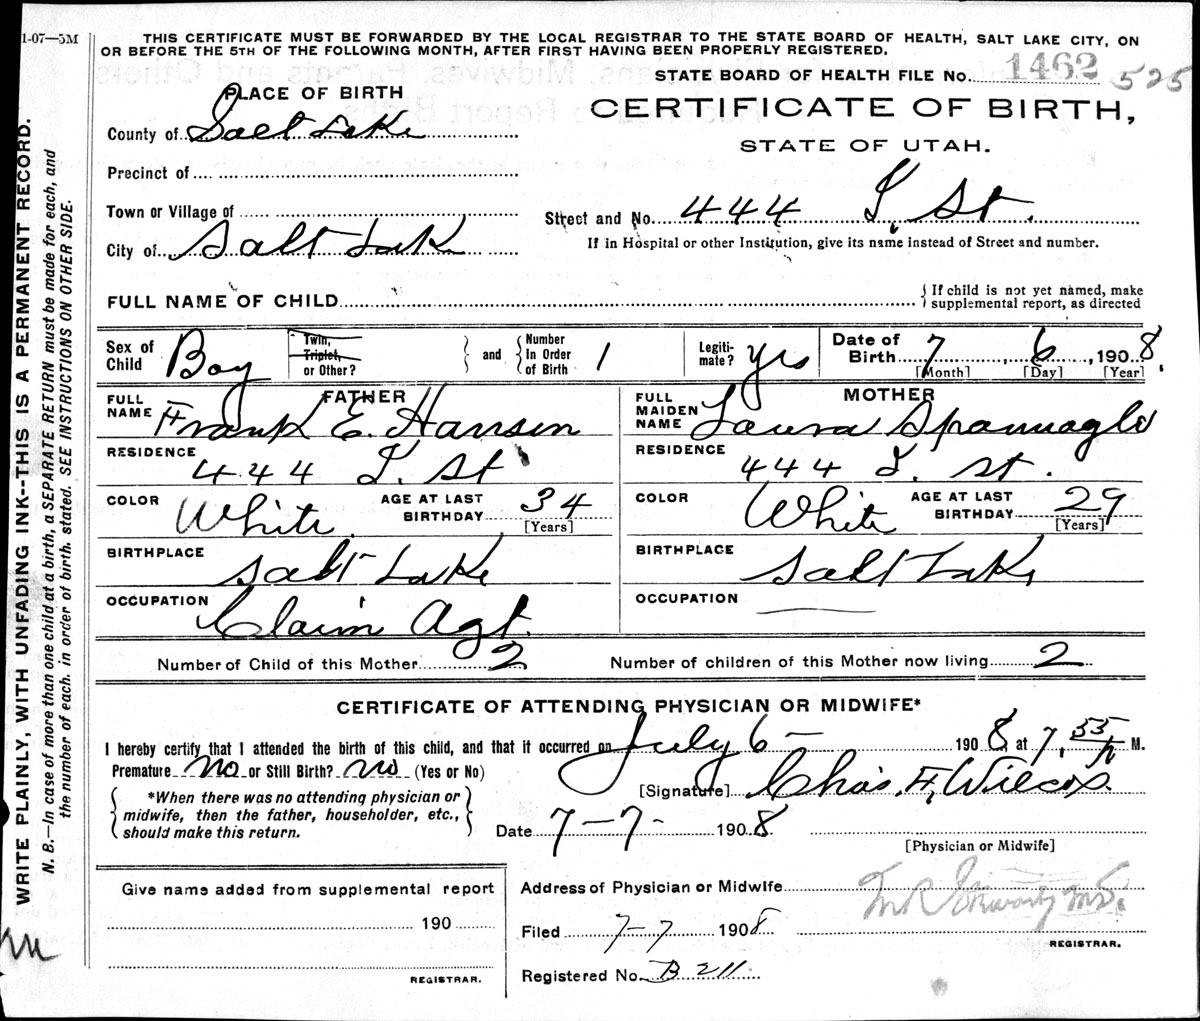 1-07—5M
THIS CERTIFICATE MUST BE FORWARDED BY THE LOCAL REGISTRAR TO THE STATE BOARD OF HEALTH, SALT LAKE CITY, ON
OR BEFORE THE 5TH OF THE FOLLOWING MONTH, AFTER FIRST HAVING BEEN PROPERLY REGISTERED.
STATE BOARD OF HEALTH FILE No. 1462 525
PLACE OF BIRTH
CERTIFICATE OF BIRTH,
STATE OF UTAH.
County of Salt Lake
Precinct of
Town or Village of
Street and No. 444 St.
City of Salt Lake
If in Hospital or other Institution, give its name instead of Street and number.
FULL NAME OF CHILD
{ If child is not yet named, make
supplemental report, as directed
Sex of Child Boy
Twin, Triplet, or Other?
and
Number In Order of Birth 1
Legiti- mate? yes
Date of Birth 7, 6, 1908
[Month] [Day] [Year]
FATHER
FULL NAME Frank E. Hansen
RESIDENCE 444 St
COLOR White
AGE AT LAST BIRTHDAY 34 [Years]
BIRTHPLACE Salt Lake
OCCUPATION Claim Agt.
MOTHER
FULL MAIDEN NAME Laura
RESIDENCE 444 St.
COLOR White
AGE AT LAST BIRTHDAY 29 [Years]
BIRTHPLACE Salt Lake
OCCUPATION
Number of Child of this Mother 2 Number of children of this Mother now living 2
CERTIFICATE OF ATTENDING PHYSICIAN OR MIDWIFE*
I hereby certify that I attended the birth of this child, and that it occurred on July 6 — 1908, at 7.55 p M.
Premature No or Still Birth? No (Yes or No)
[Signature] Chas. F. Wilcox.
*When there was no attending physician or
midwife, then the father, householder, etc.,
should make this return.
Date 7-7- 1908
[Physician or Midwife]
Give name added from supplemental report
190
REGISTRAR.
Address of Physician or Midwife
Filed 7-7 1908
REGISTRAR.
Registered No. B 211
WRITE PLAINLY, WITH UNFADING INK--THIS IS A PERMANENT RECORD.
N. B.—In case of more than one child at a birth, a SEPARATE RETURN must be made for each, and
the number of each, in order of birth, stated. SEE INSTRUCTIONS ON OTHER SIDE.